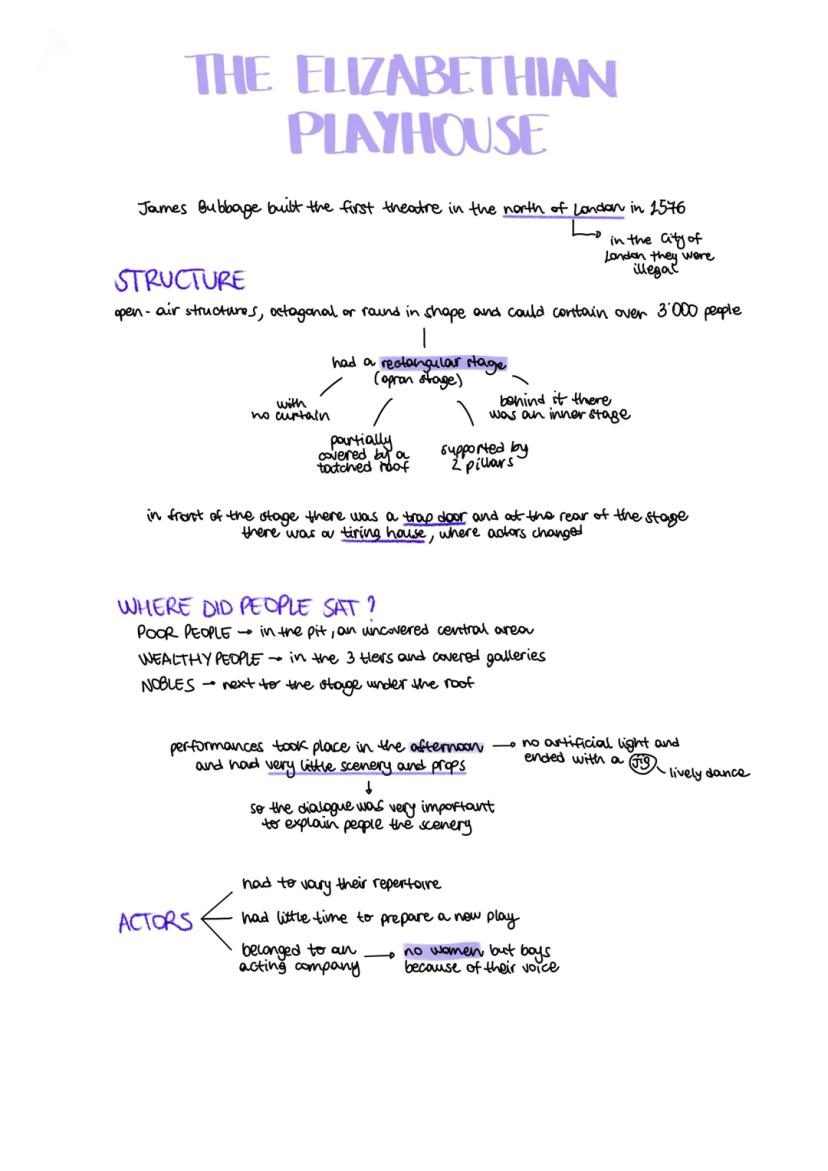 THE ELIZABETHIAN
PLAYHOUSE
James Bubbage built the first theatre in the north of London in 1576
in the City of
London they were
illegal
STRUCTURE
open-air structures, octagonal or round in shape and could contain over 3'000 people
had a rectangular stage
(apron stage)
with
no curtain
behind it there
was an inner stage
partially
covered by a
tatched roof
supported by
2 pillars
in front of the stage there was a trap door and at the rear of the stage
there was a tiring house, where actors changed
WHERE DID PEOPLE SAT?
POOR PEOPLE → in the pit, an uncovered central area
WEALTHY PEOPLE → in the 3 tiers and covered galleries
NOBLES → next to the stage under the roof
performances took place in the afternoon → no artificial light and
and had very little scenery and props
ended with a jig
lively dance
so the dialogue was very important
to explain people the scenery
ACTORS
had to vary their repertoire
had little time to prepare a new play
belonged to an
acting company → no women but boys
because of their voice